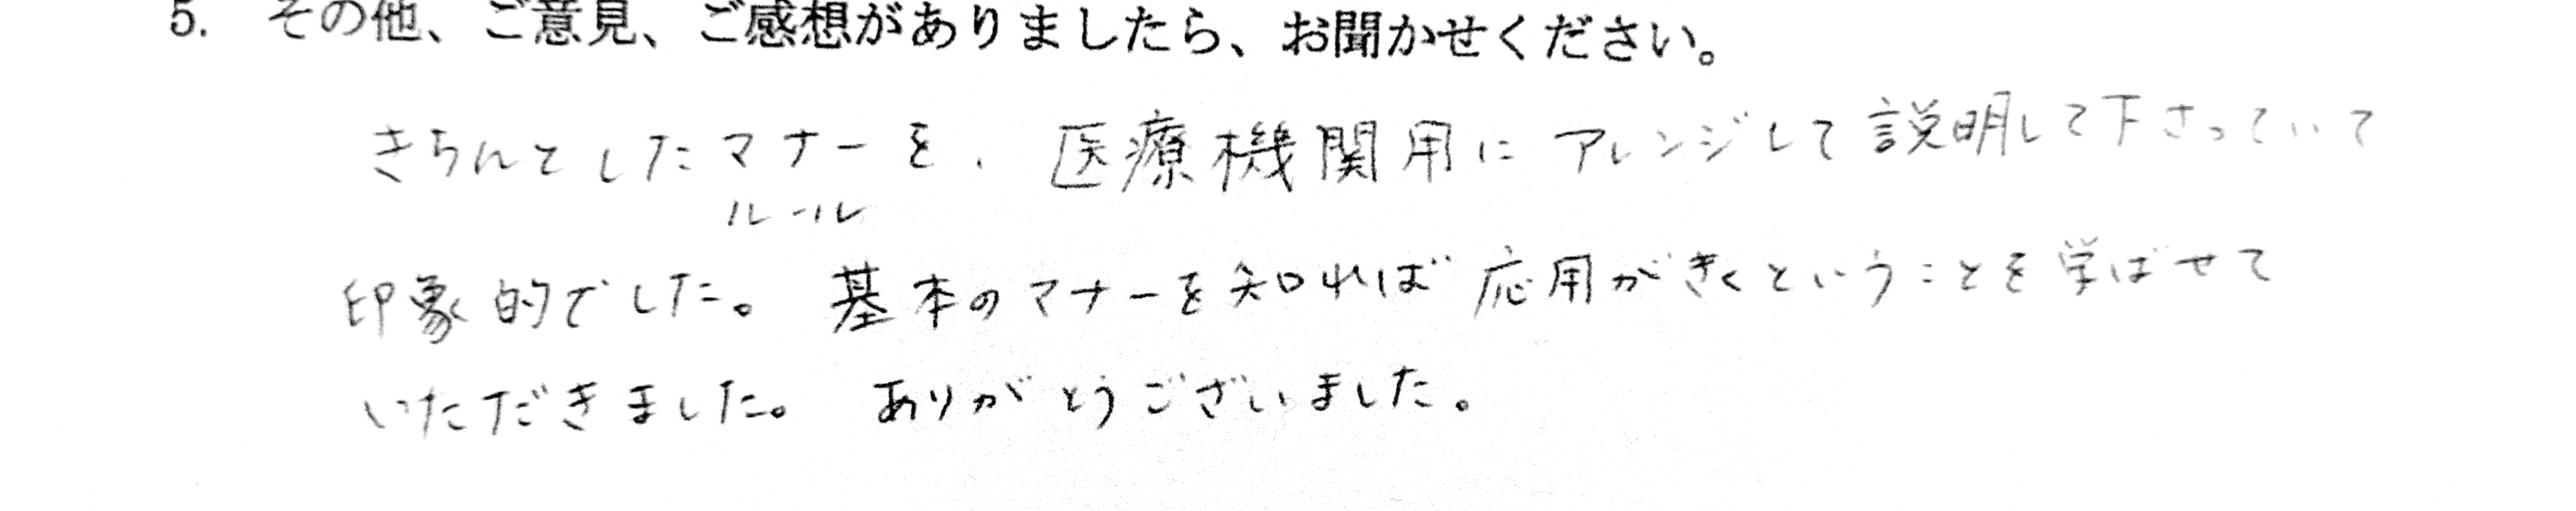 5. その他、ご意見、ご感想がありましたら、お聞かせください。
きちんとしたマナーを、医療機関用にアレンジして説明して下さっていて
ルール
印象的でした。 基本のマナーを知れば応用がきくということを学ばせて
いただきました。 ありがとうございました。